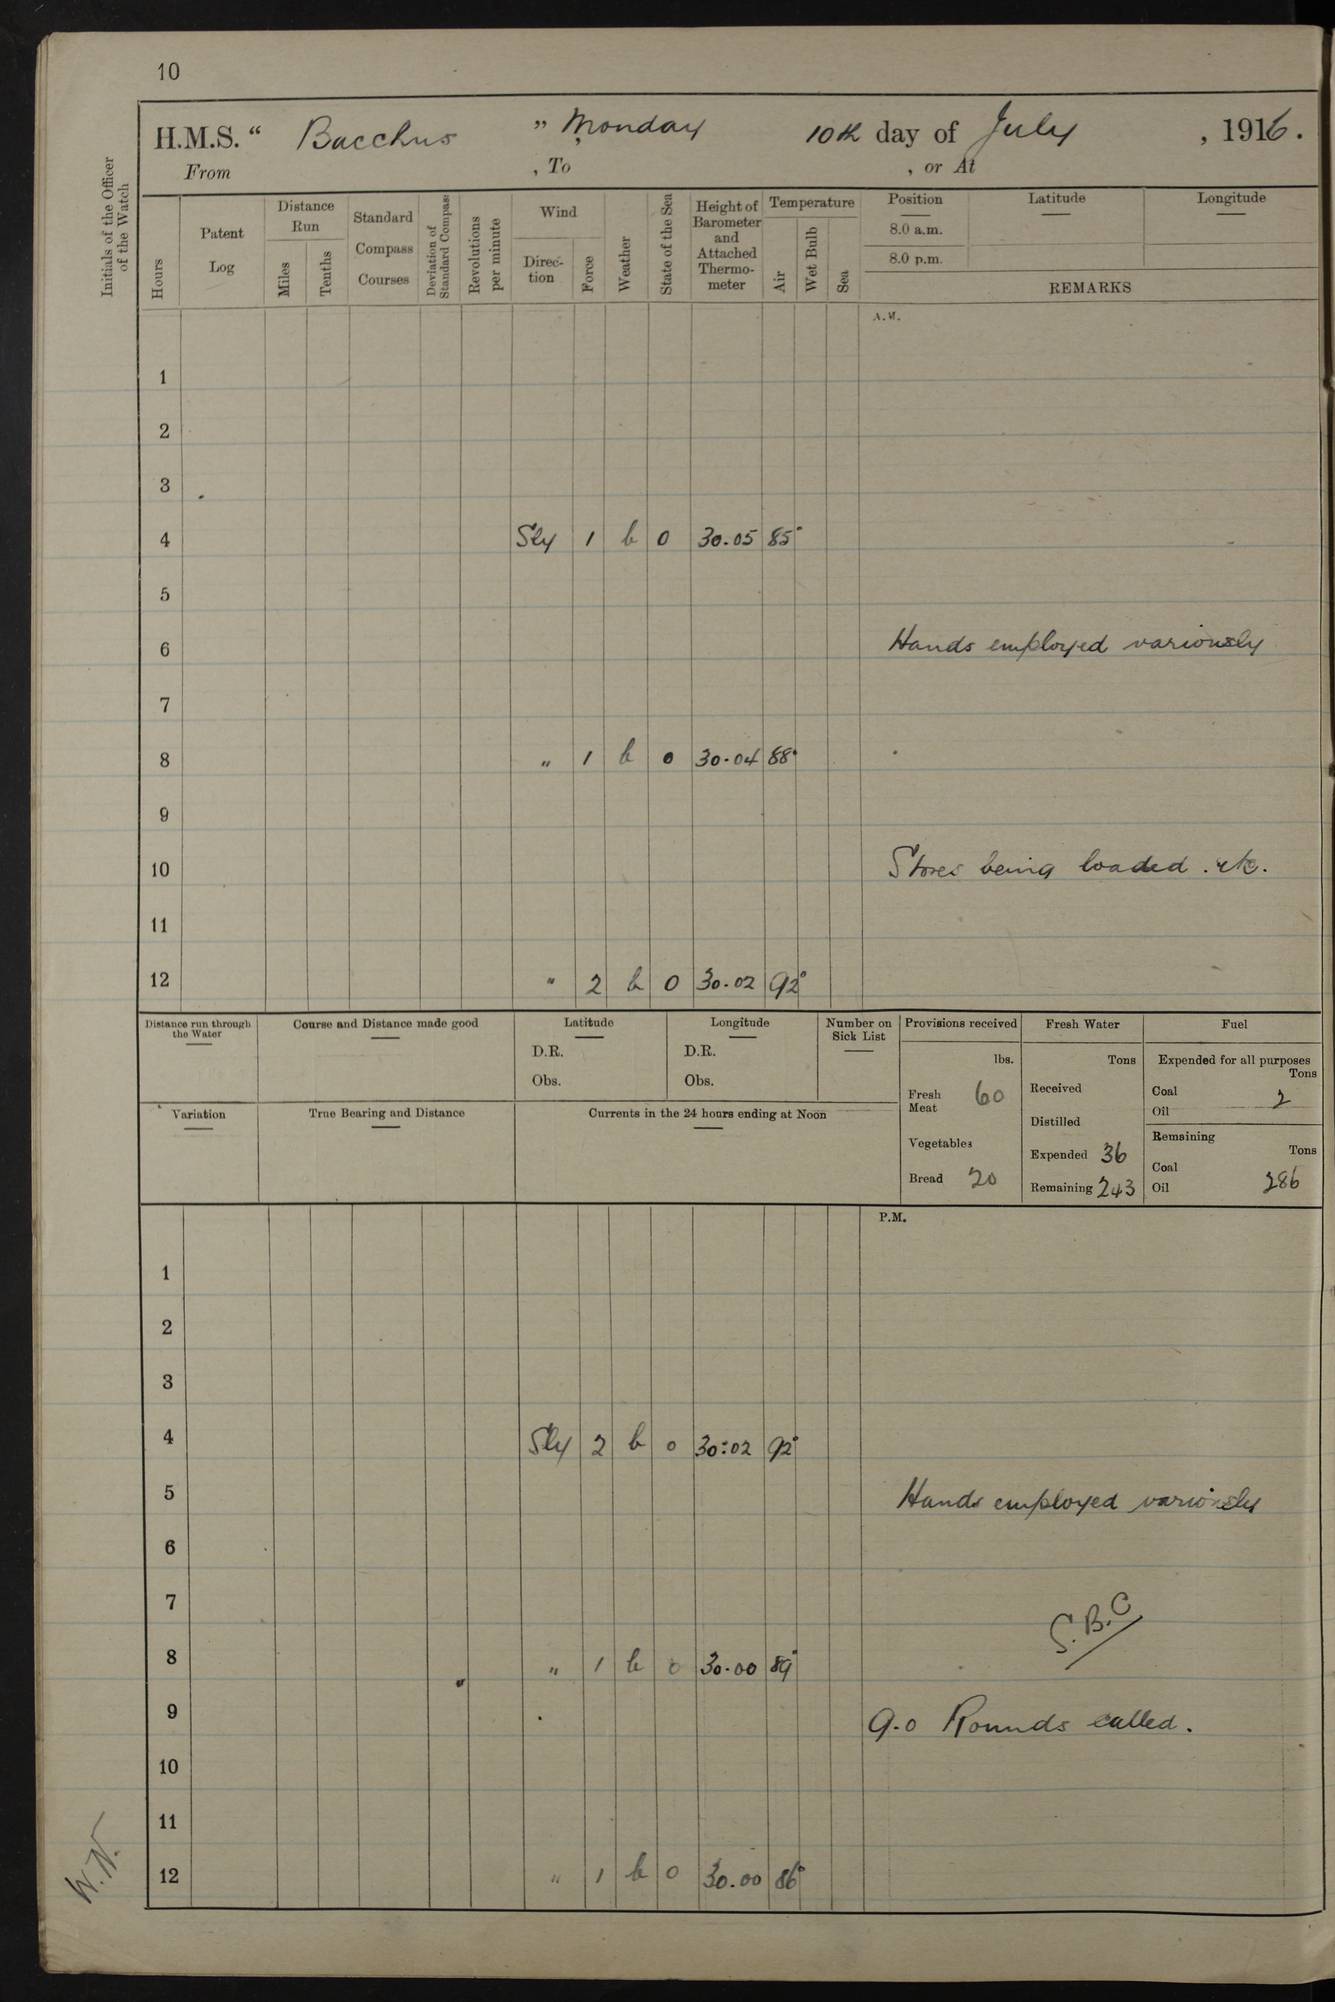 10
H.M.S. “ Bacchus ” Monday 10th day of July , 1916.
From , To , or At
Initials of the Officer of the Watch
Hours
Patent Log
Distance Run
Miles
Tenths
Standard Compass Courses
Deviation of Standard Compass
Revolutions per minute
Wind
Direc-tion
Force
Weather
State of the Sea
Height of Barometer and Attached Thermo-meter
Temperature
Air
Wet Bulb
Sea
Position
8.0 a.m.
8.0 p.m.
Latitude
Longitude
REMARKS
A.M.
1
2
3
4 Sly 1 b 0 30.05 85°
5
6 Hands employed variously
7
8 " 1 b 0 30.04 88°
9
10 Stores being loaded . etc.
11
12 " 2 b 0 30.02 92°
Distance run through the Water
Course and Distance made good
Latitude
D.R.
Obs.
Longitude
D.R.
Obs.
Number on Sick List
Provisions received
lbs.
Fresh Meat 60
Vegetables
Bread 20
Fresh Water
Tons
Received
Distilled
Expended 36
Remaining 243
Fuel
Expended for all purposes
Tons
Coal 2
Oil
Remaining
Tons
Coal
Oil 286
Variation
True Bearing and Distance
Currents in the 24 hours ending at Noon
P.M.
1
2
3
4 Sly 2 b 0 30:02 92°
5 Hands employed variously
6
7 S.B.C
8 " 1 b 0 30.00 89°
9 9.0 Rounds called.
10
11
12 " 1 b 0 30.00 86°
W.N.